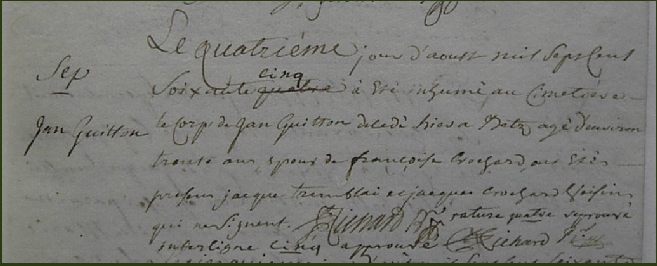 Sep
Jan Guitton
Le quatriéme jour d'aoust mil Sept Cent
Soixante cinq quatre à Eté inhumé au Cimetiere
le Corps de Jan Guitton décédé hier a agé d'environ
trente ans Epoux de françoise Crochard ont Etés
présens jacque tremblai et jacques Crochard
qui ne Signent. Richard rature quatre approuvé
interligne cinq approuvé Richard